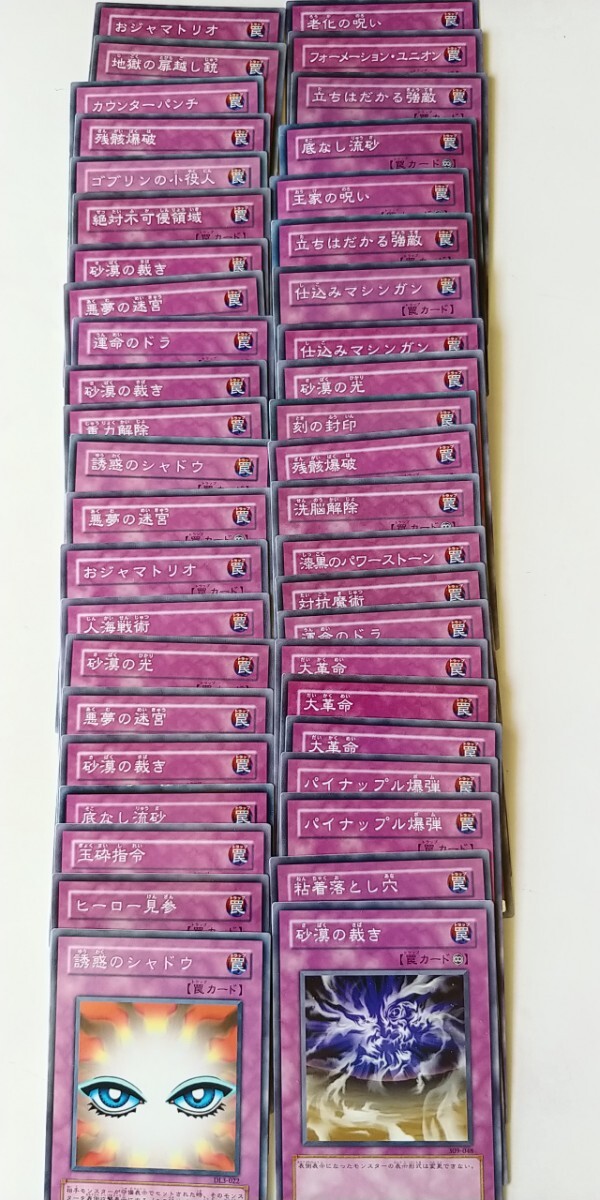 おジャマトリオ
地獄の扉越し銃
カウンターパンチ
残骸爆破
ゴブリンの小役人
絶対不可侵領域
【罠カード】
砂漠の裁き
悪夢の迷宮
運命のドラ
砂漠の裁き
重力解除
誘惑のシャドウ
悪夢の迷宮
おジャマトリオ
【罠カード】
人海戦術
砂漠の光
悪夢の迷宮
砂漠の裁き
底なし流砂
玉砕指令
ヒーロー見参
誘惑のシャドウ
【罠カード】
DL3-022
老化の呪い
フォーメーション・ユニオン
立ちはだかる強敵
底なし流砂
【罠カード】
王家の呪い
立ちはだかる強敵
【罠カード】
仕込みマシンガン
【罠カード】
仕込みマシンガン
砂漠の光
刻の封印
残骸爆破
洗脳解除
【罠カード】
漆黒のパワーストーン
対抗魔術
運命のドラ
大革命
大革命
大革命
パイナップル爆弾
パイナップル爆弾
粘着落とし穴
砂漠の裁き
【罠カード】
309-048
表側表示になったモンスターの表示形式は変更できない。